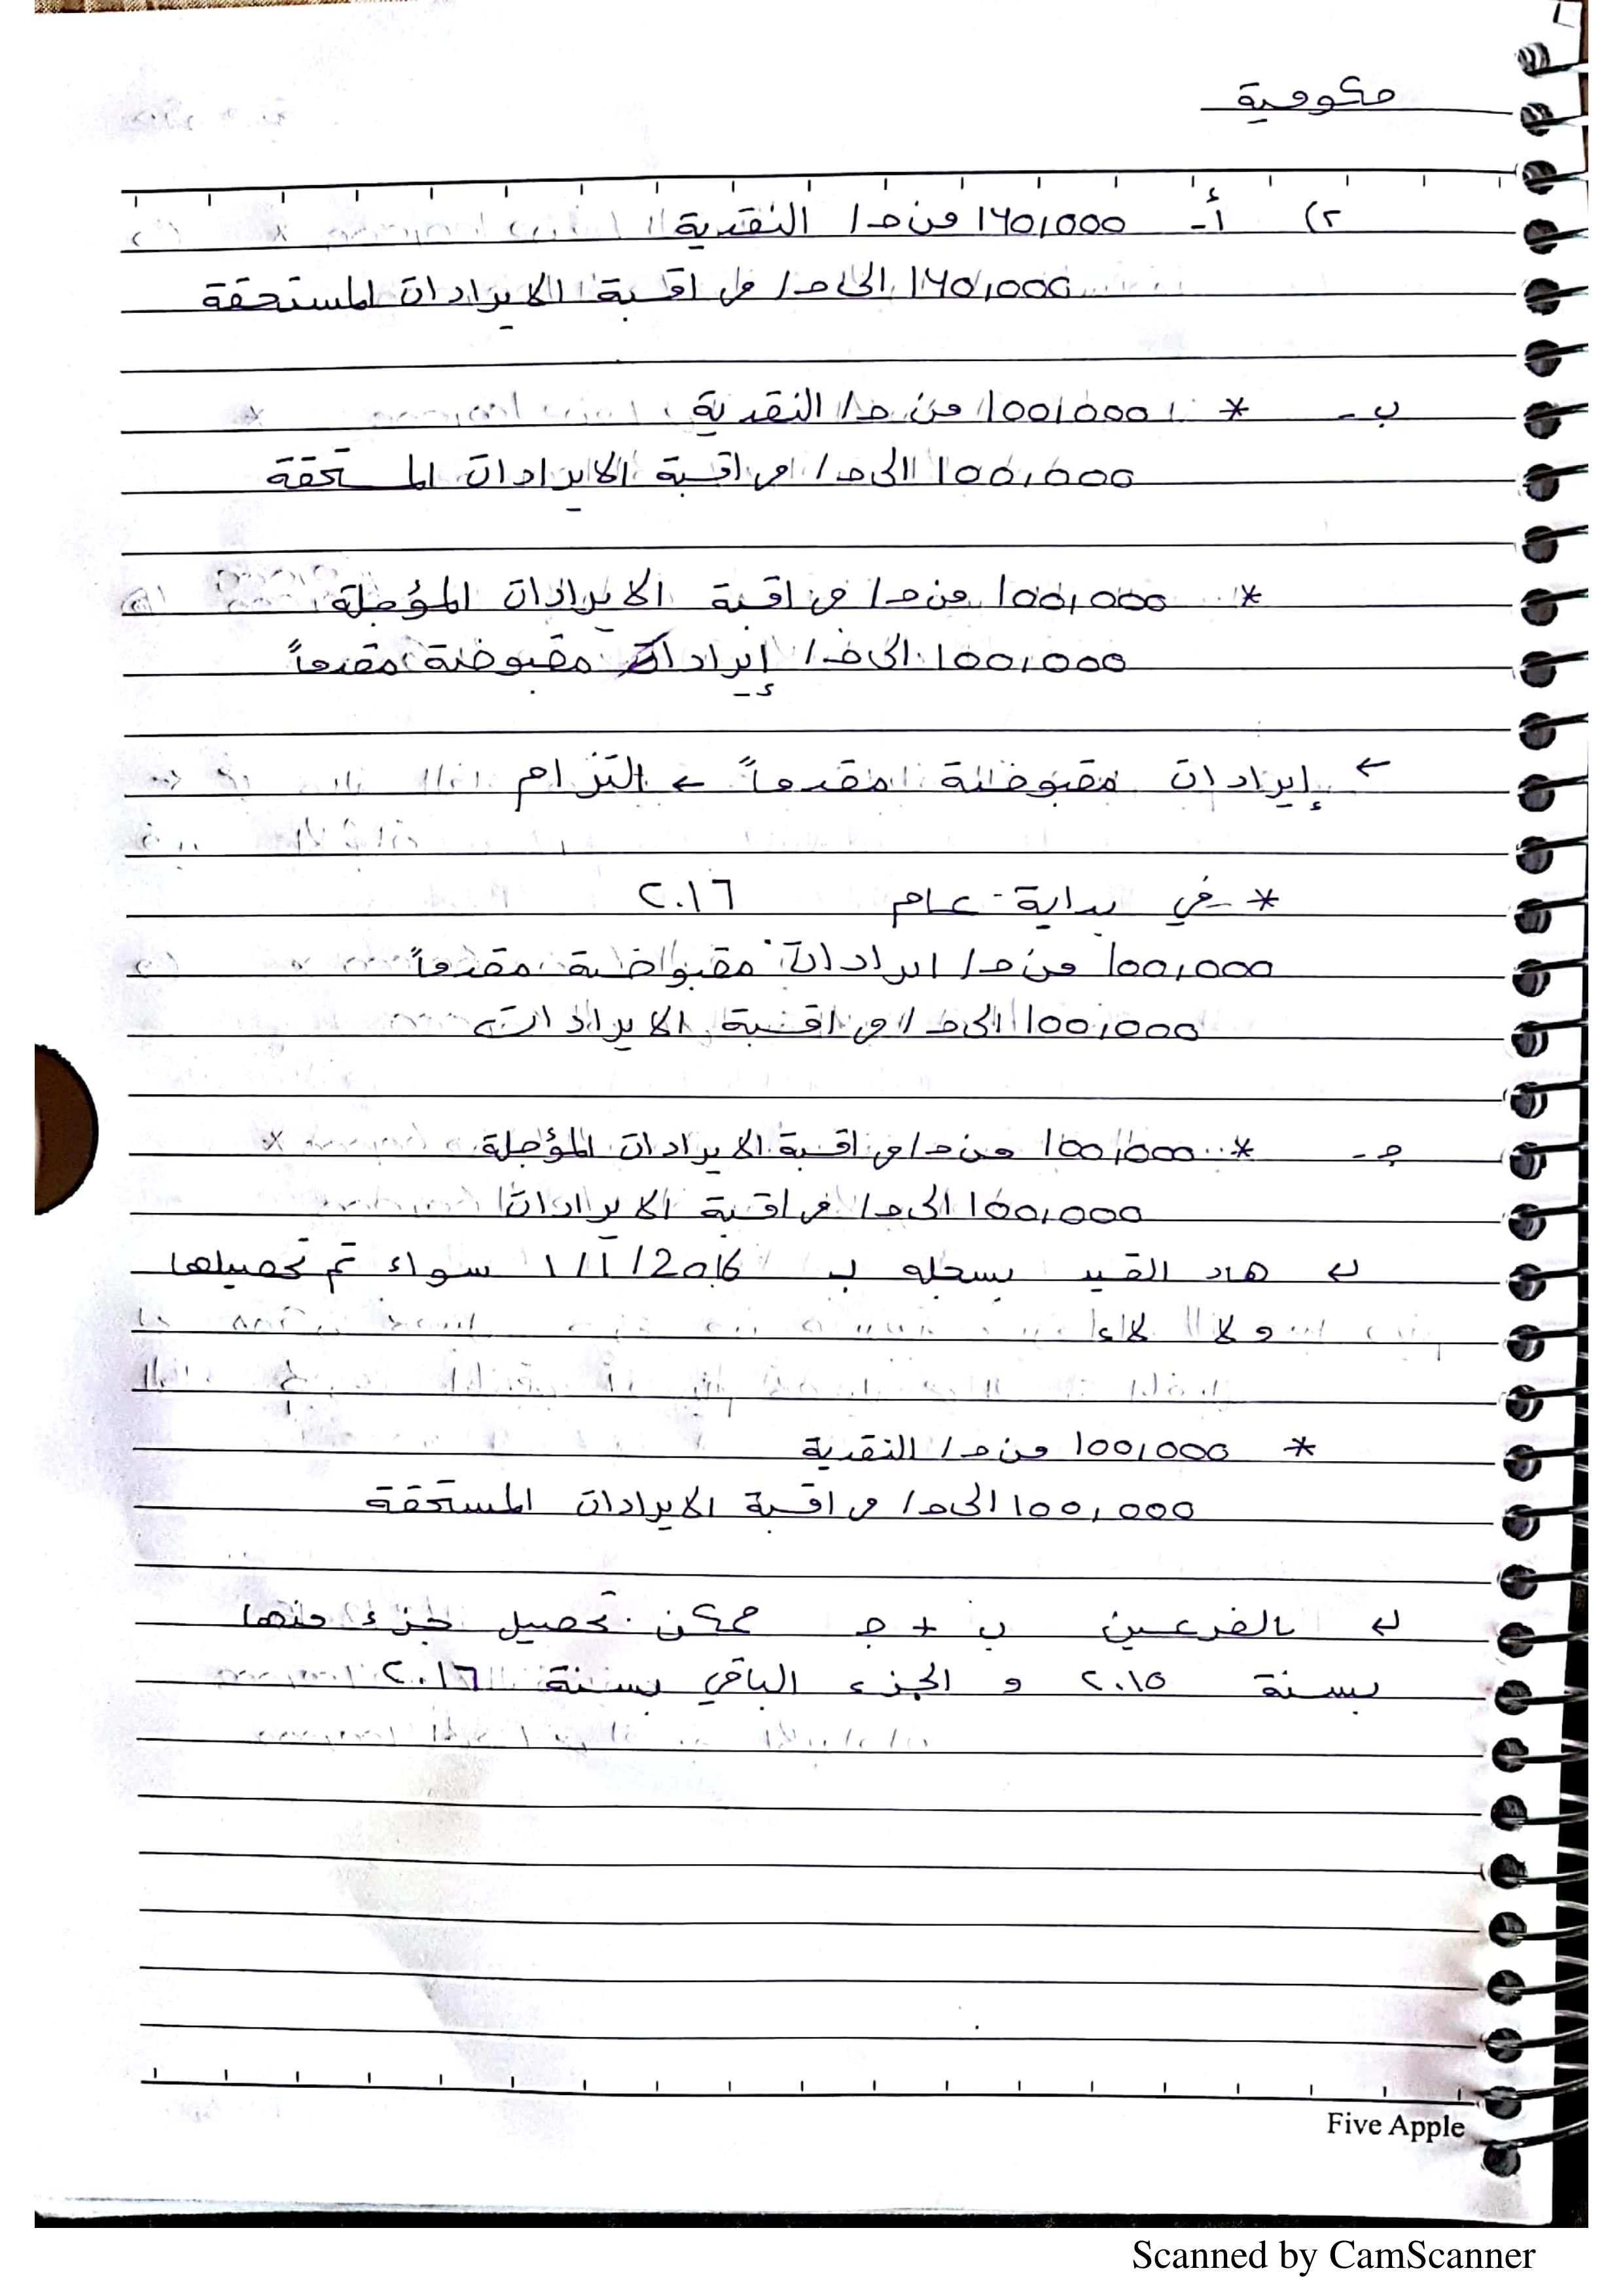 حكومية
٢) أ- 160,000 من ح/ النقدية
160,000 الى ح/ مراقبة الايرادات المستحقة
ب- * 100,000 من ح/ النقدية
100,000 الى ح/ مراقبة الايرادات المستحقة
* 100,000 من ح/ مراقبة الايرادات المؤجلة
100,000 الى ح/ إيرادات مقبوضة مقدماً
← إيرادات مقبوضة مقدماً ← التزام
* في بداية عام ٢٠١٦
100,000 من ح/ ايرادات مقبوضة مقدماً
100,000 الى ح/ مراقبة الايرادات
ج- * 100,000 من ح/ مراقبة الايرادات المؤجلة
100,000 الى ح/ مراقبة الايرادات
↵ هاد القيد بسجله ب 1/1/2016 سواء تم تحصيلها
ولا لاء
* 100,000 من ح/ النقدية
100,000 الى ح/ مراقبة الايرادات المستحقة
↵ بالفرعين ب + ج ممكن تحصيل جزء منها
بسنة ٢٠١٥ و الجزء الباقي بسنة ٢٠١٦
Five Apple
Scanned by CamScanner